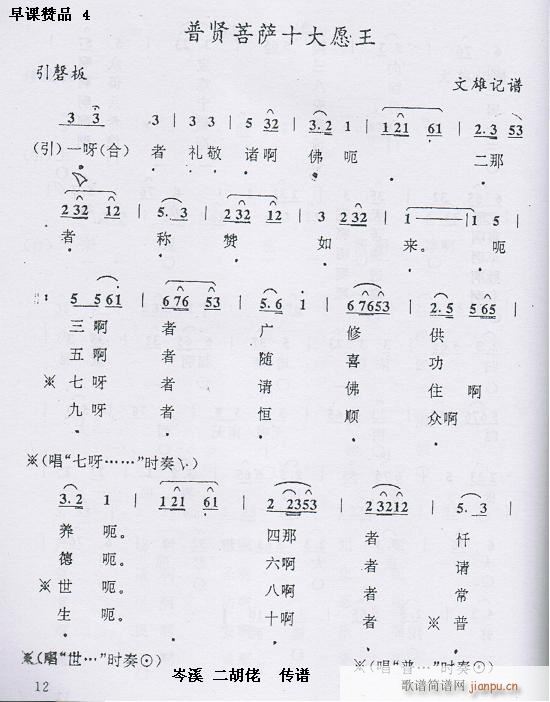 早课赞品 4
普贤菩萨十大愿王
引磬板
文雄记谱
3 3 3 | 3 3 | 5 32 | 3.2 1 | 1 21 61 | 2.3 53
(引)一呀(合) 者 礼敬 诸啊 佛呃 二那
2 32 12 | 5. 3 | 2 32 12 | 3 2 32 | 1 —— 1 | 1 5 |
者 称 赞 如 来。 呃
‖: 5 5 61 | 6 76 53 | 5. 6 | 6 7653 | 2. 5 5 65 |
三啊 者 广 修 供
五啊 者 随 喜 功
※七呀 者 请 佛 住啊
九呀 者 恒 顺 众啊
※(唱“七呀……”时奏
3. 2 1 | 1 21 61 | 2 2353 | 2 3212 | 5. 3 |
养 呃。 四那 者 忏
德 呃。 六啊 者 请
※世 呃。 八啊 者 常
生 呃。 十啊 者 ※普
※(唱“世…”时奏⊙)
※(唱“普…”时奏⊙)
岑溪 二胡佬 传谱
歌谱简谱网
jianpu.cn
12